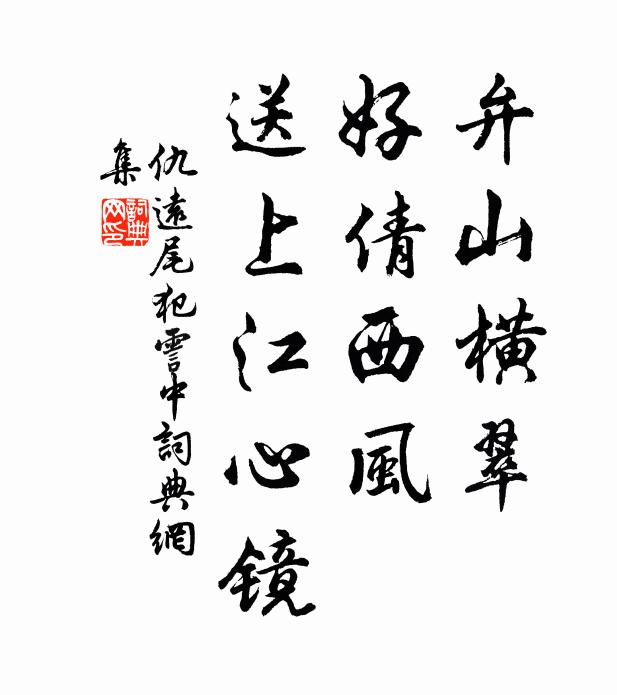 弁山橫翠
好倩西風
送上江心镜
仇遠尾犯霅中詞典網
集
詞典
网印